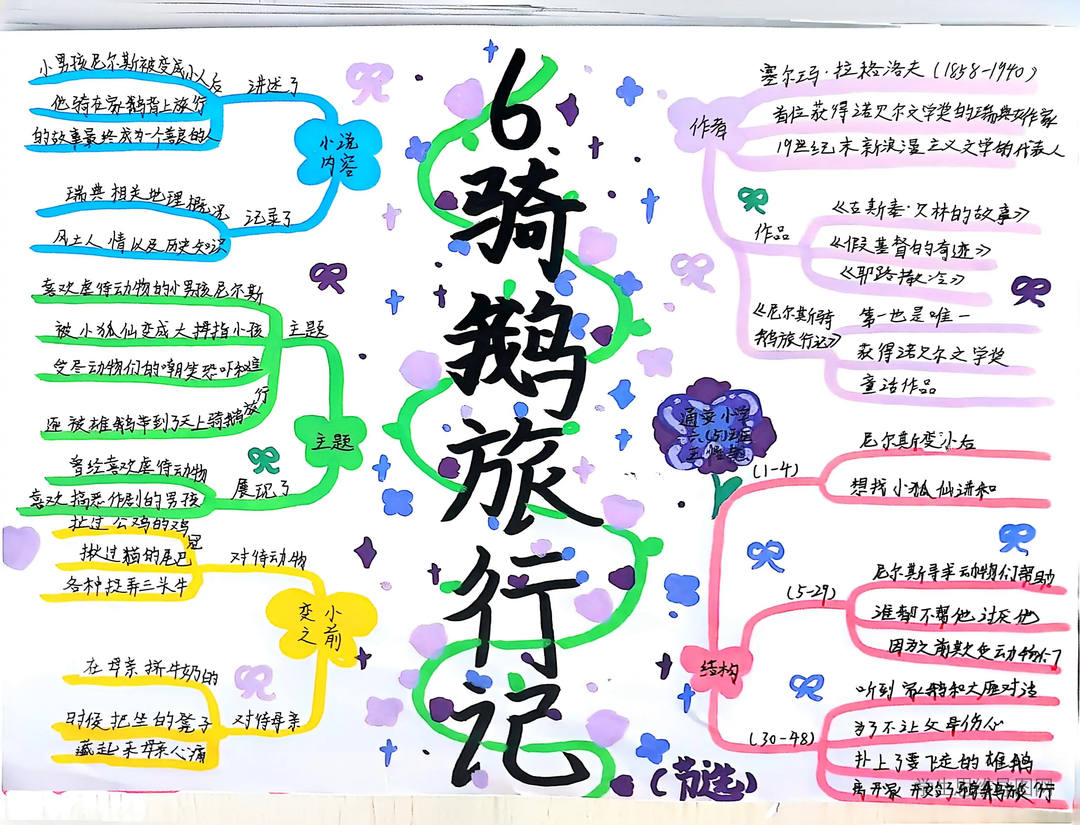 6.骑鹅旅行记
(节选)
小说内容
讲述了
小男孩尼尔斯被变成小人后
他骑在家鹅背上旅行
的故事最终成为一个善良的人
记录了
瑞典相关地理概况
风土人情以及历史知识
主题
主题
喜欢虐待动物的小男孩尼尔斯
被小狐仙变成大拇指小孩
受尽动物们的嘲笑恐吓和追
还被雄鹅带到了天上骑鹅旅行
展现了
曾经喜欢虐待动物
喜欢搞恶作剧的男孩
变小之前
对待动物
扯过公鸡的鸡冠
揪过猫的尾巴
各种捉弄三头牛
对待母亲
在母亲挤牛奶的
时候把坐的凳子
藏起来母亲心痛
作者
塞尔玛·拉格洛夫(1858-1940)
首位获得诺贝尔文学奖的瑞典女作家
19世纪末新浪漫主义文学的代表人
作品
《古斯泰·贝林的故事》
《假基督的奇迹》
《耶路撒冷》
《尼尔斯骑
鹅旅行记》
第一也是唯一
获得诺贝尔文学奖
童话作品
通安小学
六(5)班
结构
(1-4)
尼尔斯变小后
想找小狐仙讲和
(5-29)
尼尔斯寻求动物们帮助
谁都不帮他讨厌他
(30-48)
听到家鹅和大雁对话
为了不让父母伤心
扑上了要飞走的雄鹅
离开家 开始了骑鹅旅行